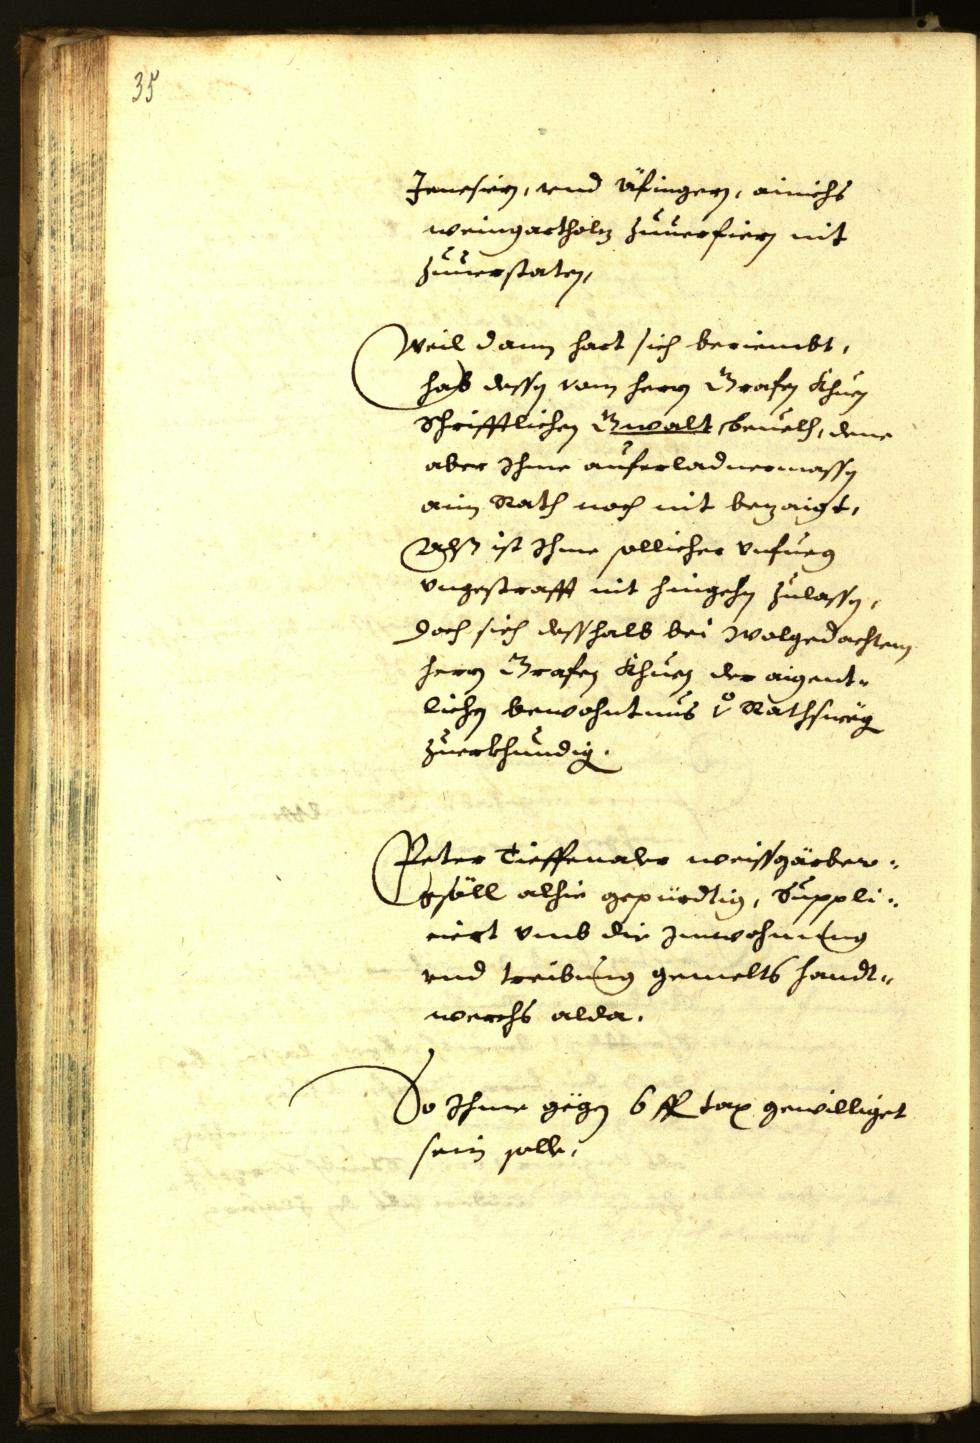 35
Jenesien, vnd Äfingen, ainichs
weingartholz zuuerfiern nit
zuuerstaten,
Weil dann hart sich beriembt,
hab dessen vom herrn Grafen Khuen
Schrifftlichen Gwalt, beuelh, dene
aber Ihme auferladnermassen
aim Rath noch nit bezaigt,
Alß ist Ihme sollicher vnfueg
vngestrafft nit hingehn zulassen,
doch sich desshalb bei wolgedachtem
herrn Grafen Khuen der aigent-
lichen bewohntnus Rathsweg
zuerkhundig.
Peter Tieffenaler weissgärber-
gsöll alhie gepürdtig, Suppli-
ciert vmb die Innwohnung
vnd treibung gemelts handt-
werchs alda.
So Ihme gegen 6 fl tax gewilliget
sein solle,